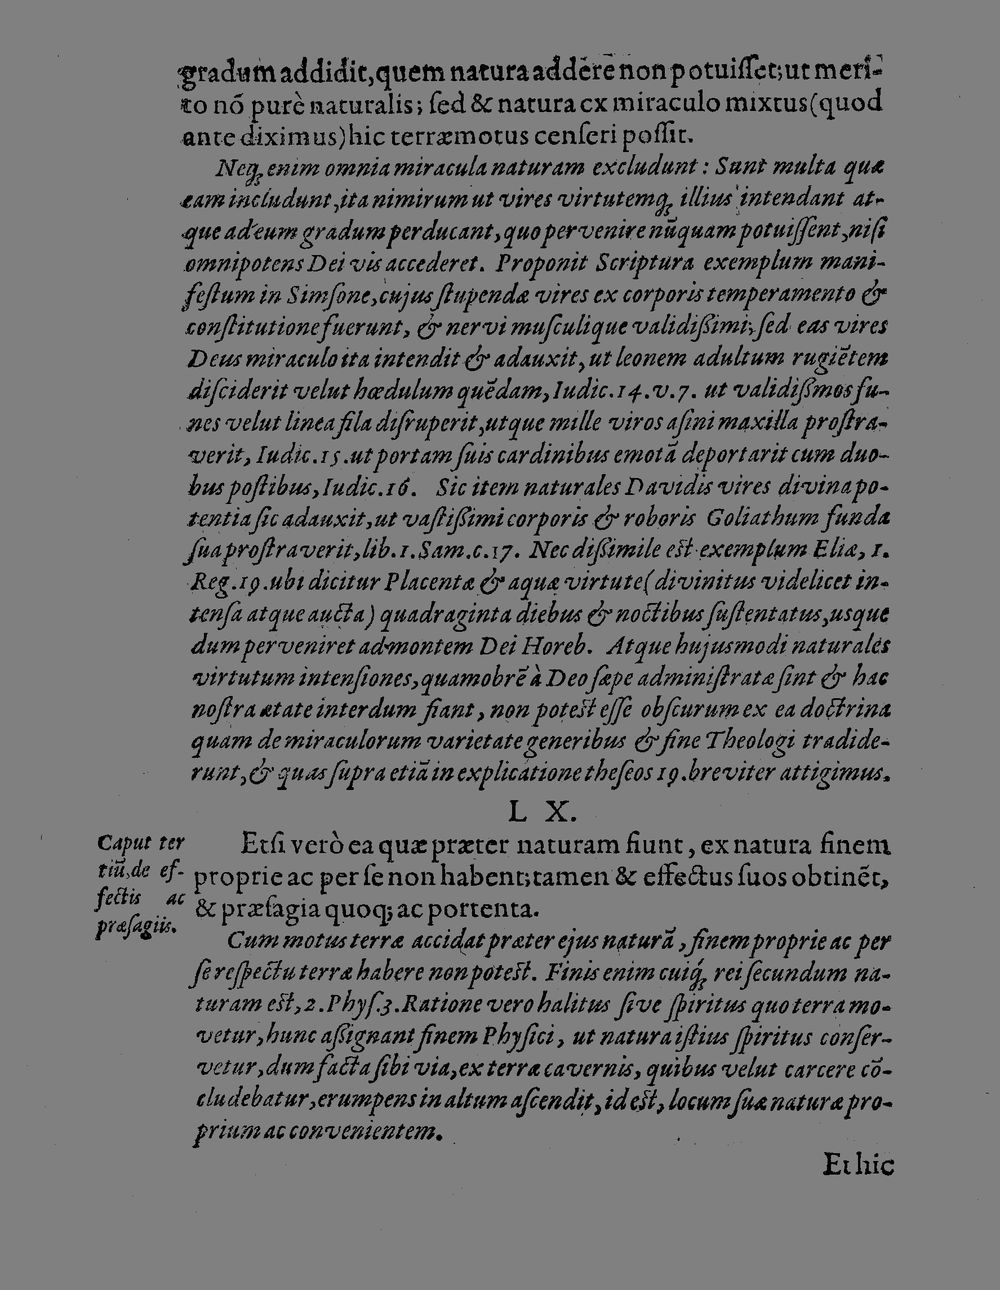 gradum addidit, quem natura addere non potuiſſet; ut meri-
to nõ purè naturalis; ſed & natura ex miraculo mixtus (quod
ante diximus) hic terræmotus cenſeri poſſit.
Neq; enim omnia miracula naturam excludunt: Sunt multa quæ
eam includunt, ita nimirum ut vires virtutemq; illius intendant at-
que ad eum gradum perducant, quo pervenire nũquam potuiſſent, niſi
omnipotens Dei vis accederet. Proponit Scriptura exemplum mani-
feſtum in Simſone, cujus ſtupendæ vires ex corporis temperamento &
conſtitutione fuerunt, & nervi muſculique validiſſimi; ſed eas vires
Deus miraculo ita intendit & adauxit, ut leonem adultum rugiẽtem
diſciderit velut hœdulum quẽdam, Iudic. 14. v. 7. ut validiſſmos fu-
nes velut linea fila diſruperit, utque mille viros aſini maxilla proſtra-
verit, Iudic. 15. ut portam ſuis cardinibus emotã deportarit cum duo-
bus poſtibus, Iudic. 16. Sic item naturales Davidis vires divina po-
tentia ſic adauxit, ut vaſtiſſimi corporis & roboris Goliathum funda
ſua proſtraverit, lib. 1. Sam. c. 17. Nec diſſimile eſt exemplum Eliæ, 1.
Reg. 19. ubi dicitur Placentæ & aquæ virtute (divinitus videlicet in-
tenſa atque aucta) quadraginta diebus & noctibus ſuſtentatus, usque
dum perveniret ad montem Dei Horeb. Atque hujusmodi naturales
virtutum intenſiones, quamobrẽ à Deo ſæpe adminiſtratæ ſint & hac
noſtra ætate interdum fiant, non poteſt eſſe obſcurum ex ea doctrina
quam de miraculorum varietate generibus & fine Theologi tradide-
runt, & quas ſupra etiã in explicatione theſeos 19. breviter attigimus.
LX.
Caput ter
tiũ, de ef-
fectis ac
præſagiis.
Etſi verò ea quæ præter naturam fiunt, ex natura finem
proprie ac per ſe non habent; tamen & effectus ſuos obtinẽt,
& præſagia quoq; ac portenta.
Cum motus terræ accidat præter ejus naturã, finem proprie ac per
ſe reſpectu terræ habere non poteſt. Finis enim cuiq; rei ſecundum na-
turam eſt, 2. Phyſ. 3. Ratione vero halitus ſive ſpiritus quo terra mo-
vetur, hunc aſſignant finem Phyſici, ut natura iſtius ſpiritus conſer-
vetur, dum facta ſibi via, ex terræ cavernis, quibus velut carcere cõ-
cludebatur, erumpens in altum aſcendit, id eſt, locum ſuæ naturæ pro-
prium ac convenientem.
Et hic